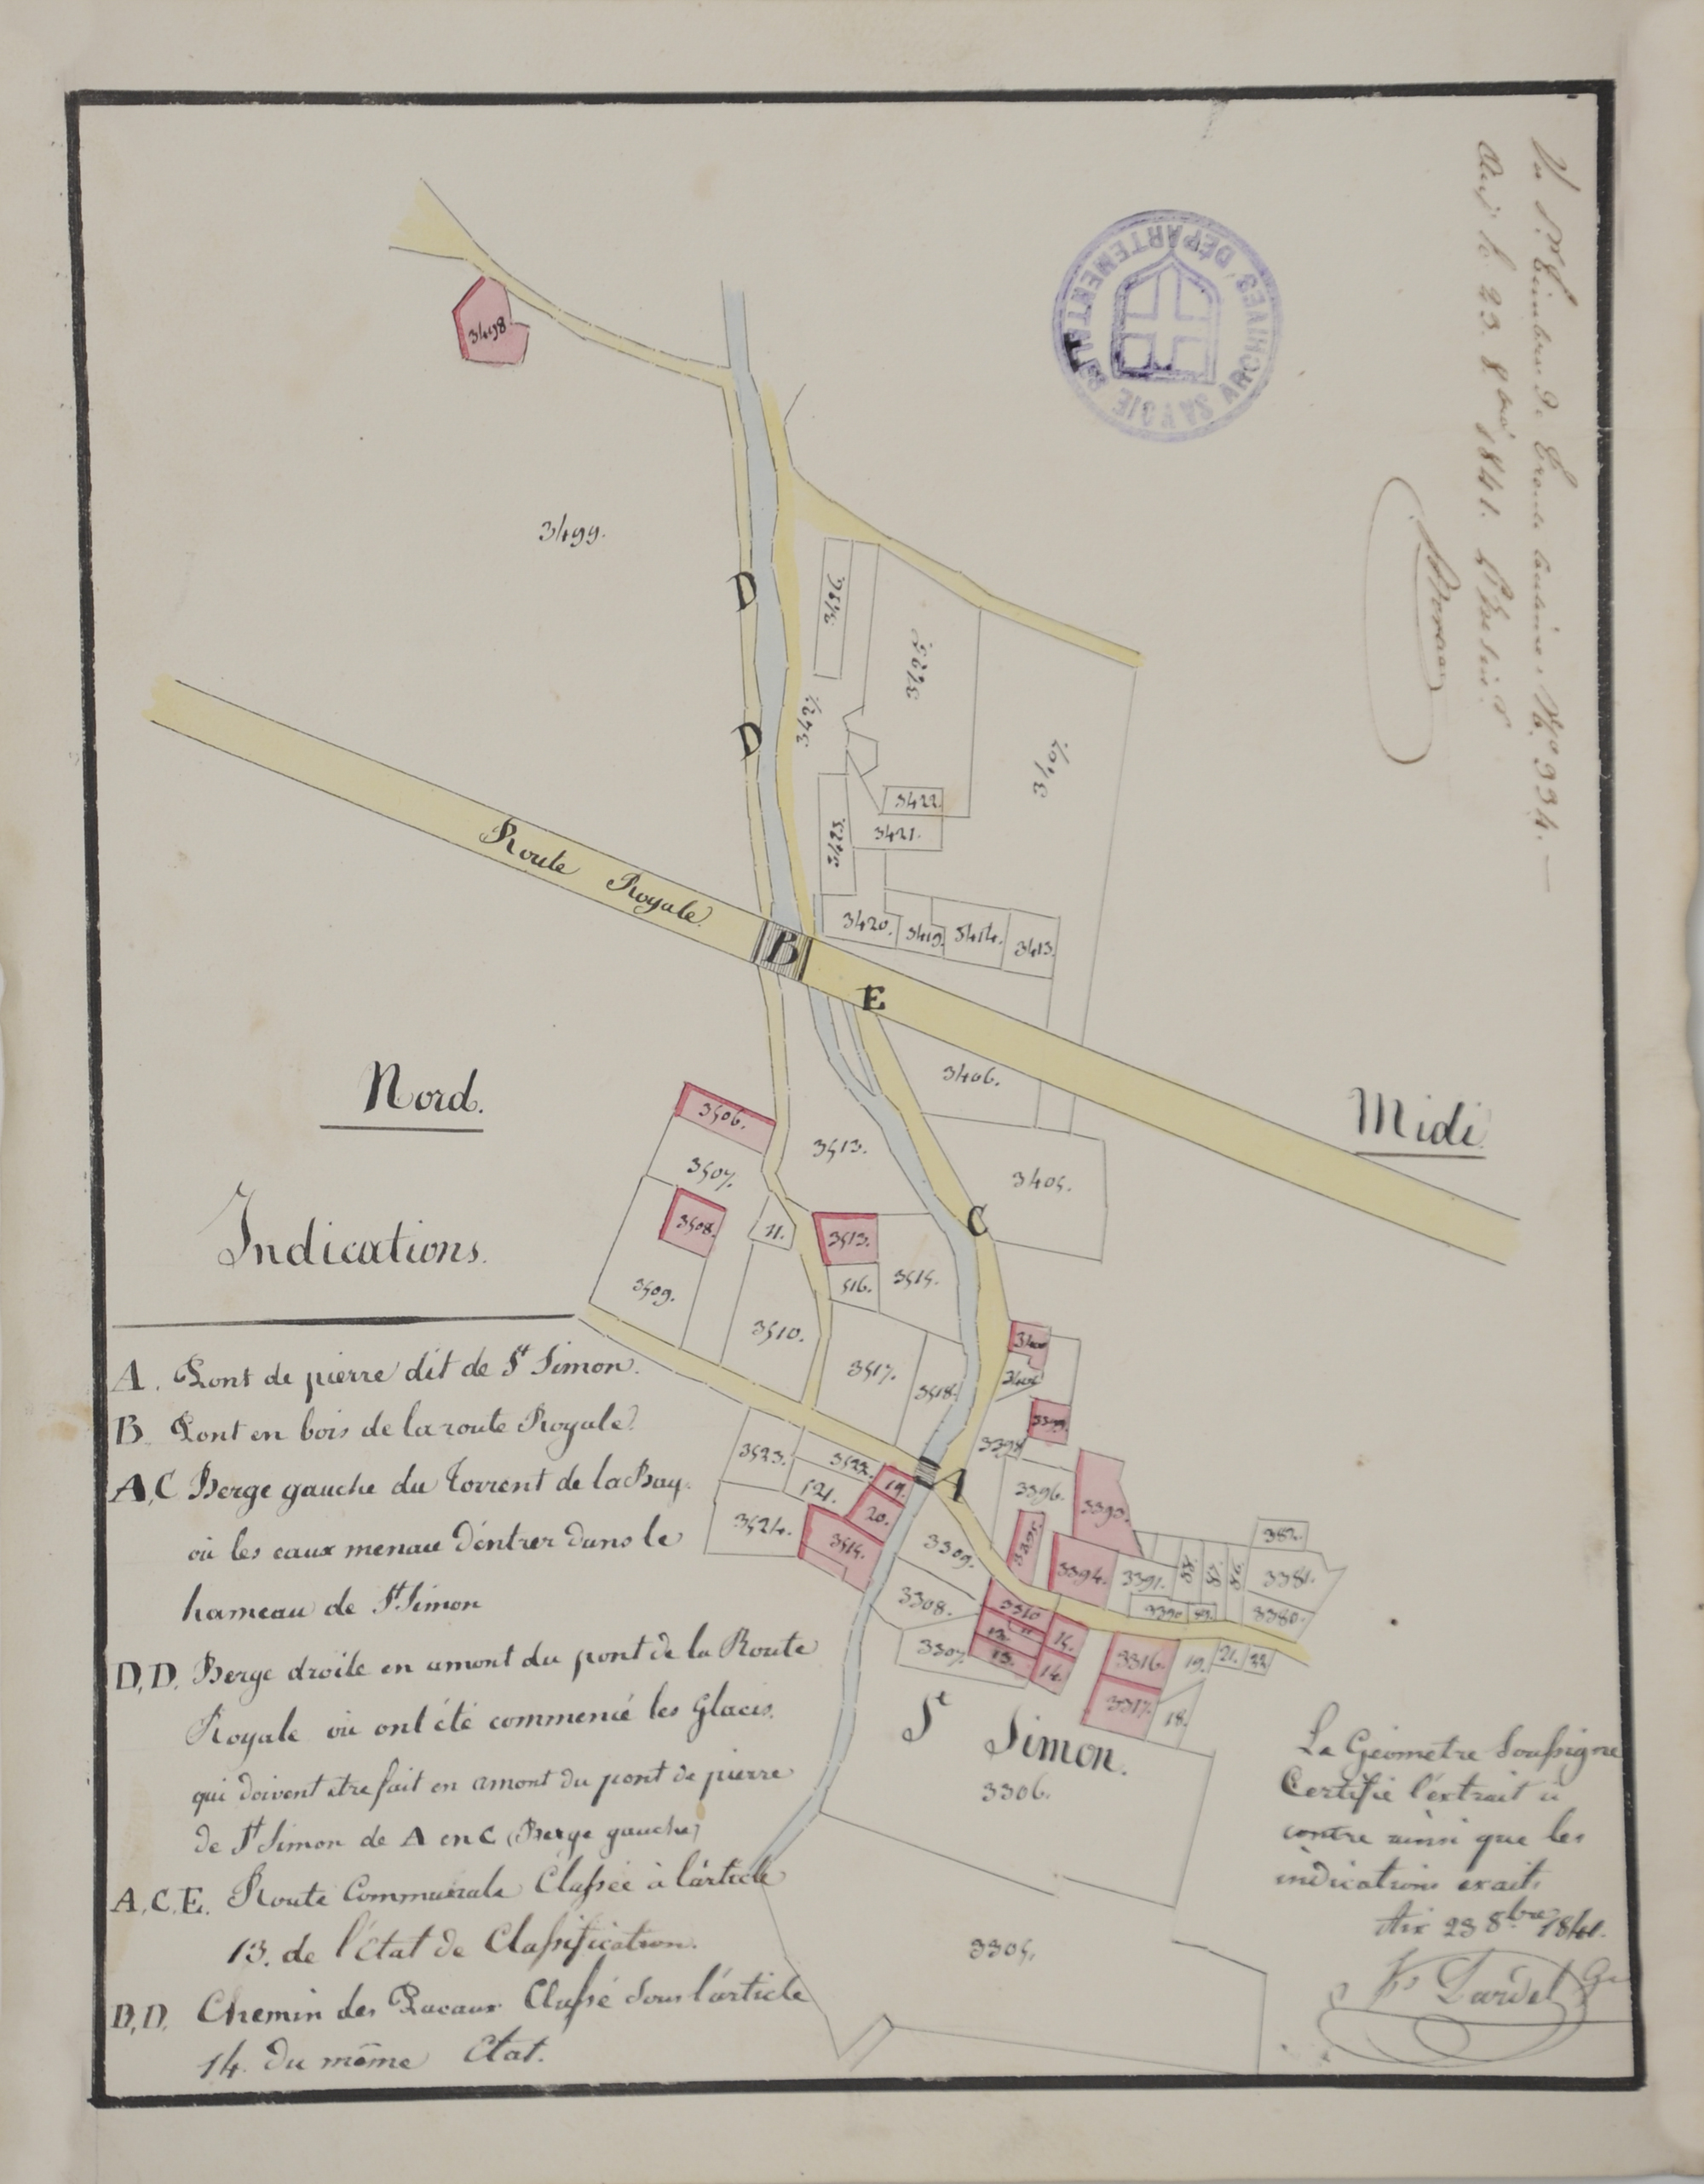 Aix le 23. 8bre 1841.
ARCHIVES DÉPARTEMENTALES
SAVOIE
3498
3499.
D
3426
3425
D
3424
3407
3422
3421.
3423
3420.
3419.
3414.
3413.
Route Royale
B
E
Nord.
Midi
3406.
3506.
3513.
3507.
3405.
3508.
11.
3513.
C
3509.
516.
3515.
3510.
3517.
3518.
3400
3399.
3398
3523.
3522.
A
521.
19.
20.
3396.
3393.
3524.
3514.
3309.
3395.
3394.
3391.
88.
87.
86.
382.
3381.
3390
89.
3380.
3308.
3310
3307.
12.
11
13.
15.
14.
3316.
19.
21.
22
3317.
18.
St Simon.
3306.
3305.
Indications.
A. Pont de pierre dit de St Simon.
B. Pont en bois de la route Royale.
A,C Berge gauche du Torrent de la Bay
où les eaux menace d'entrer dans le
hameau de St Simon
D,D. Berge droite en amont du pont de la Route
Royale où ont été commencé les Glacis.
qui doivent être fait en amont du pont de pierre
de St Simon de A en C (Berge gauche)
A,C,E. Route Communale Classée à l'article
13. de l'état de Classification.
D,D. Chemin des Classé sous l'article
14. du même Etat.
Le Géomètre Soussigné
Certifie l'extrait ci
contre ainsi que les
indications exacts
Aix 23 8bre 1841.